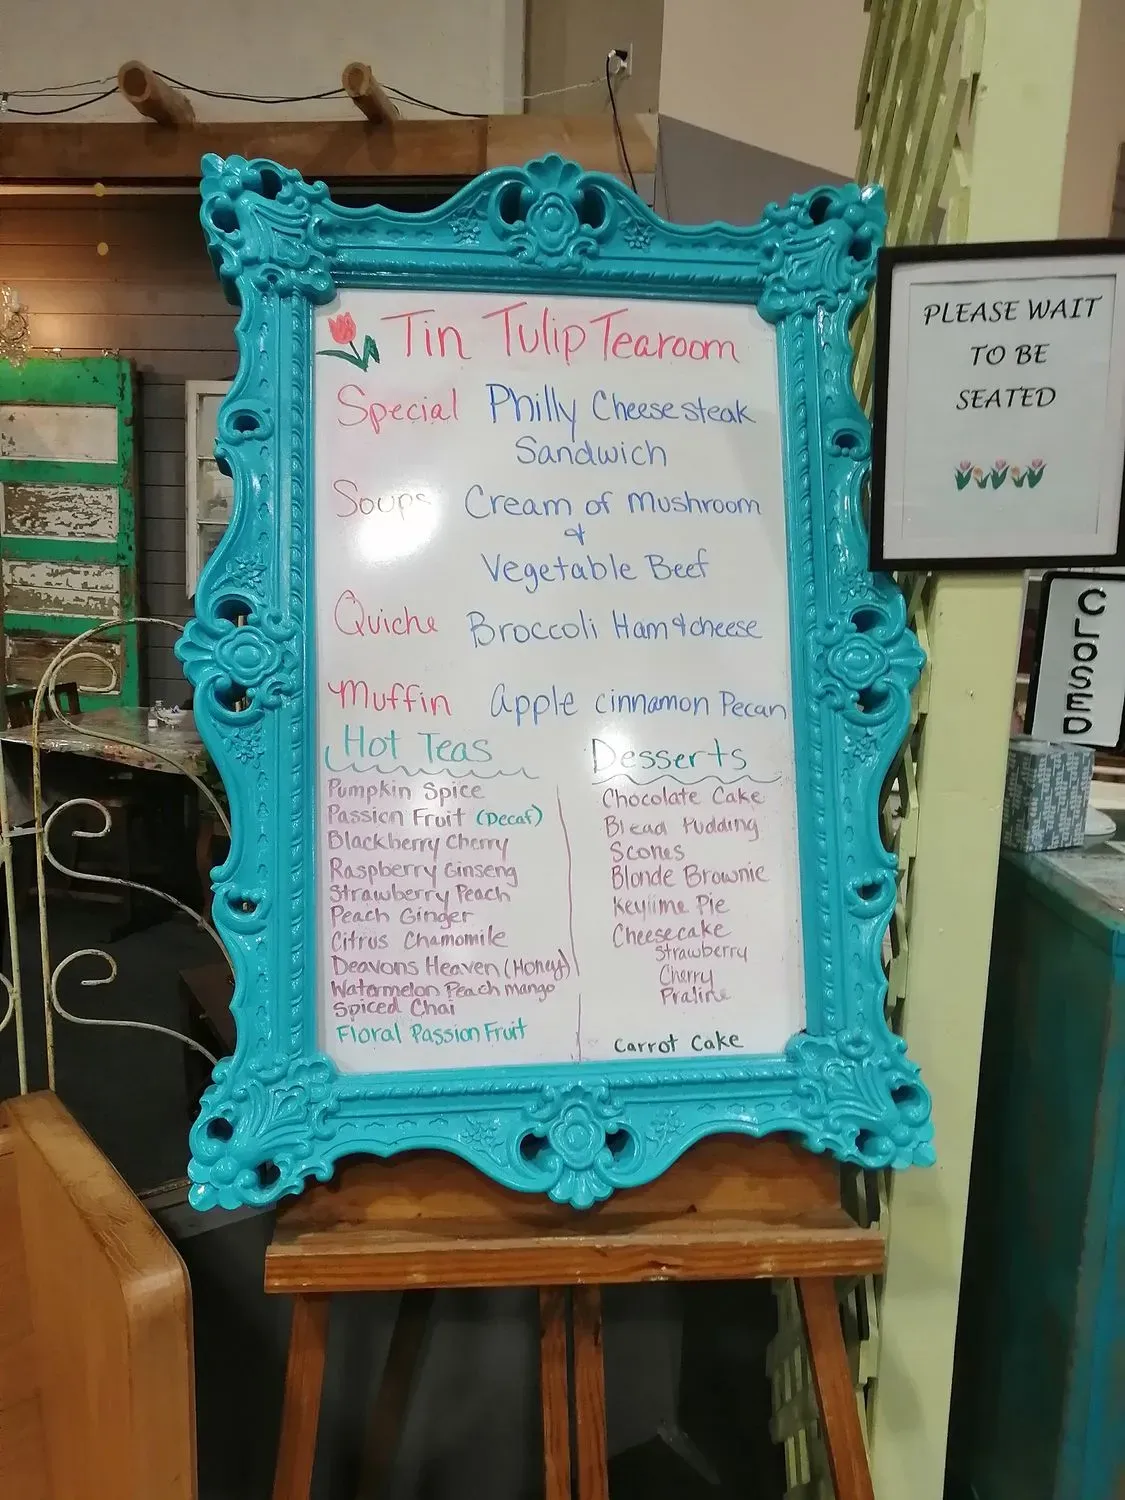 Tin Tulip Tearoom
Special Philly Cheesesteak
Sandwich
Soups Cream of Mushroom
&
Vegetable Beef
Quiche Broccoli Ham & cheese
Muffin Apple cinnamon Pecan
Hot Teas
Pumpkin Spice
Passion Fruit (Decaf)
Blackberry Cherry
Raspberry Ginseng
Strawberry Peach
Peach Ginger
Citrus Chamomile
Deavons Heaven (Honey)
Watermelon Peach mango
Spiced Chai
Floral Passion Fruit
Desserts
Chocolate Cake
Bread Pudding
Scones
Blonde Brownie
Keylime Pie
Cheesecake
Strawberry
Cherry
Praline
Carrot Cake
PLEASE WAIT
TO BE
SEATED
CLOSED